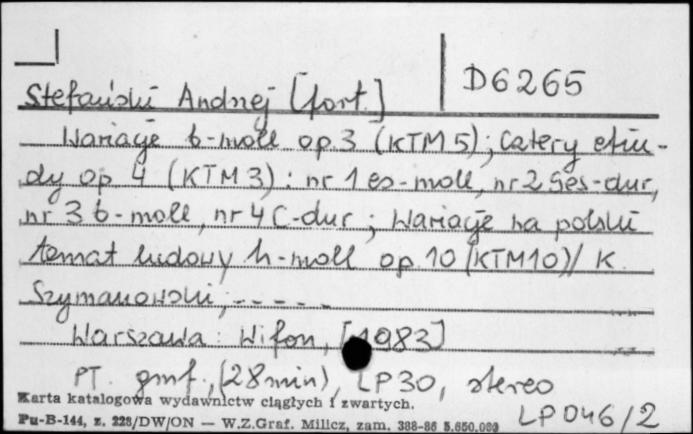 D6265
Stefański Andrzej [fort.]
Wariacje b-moll op. 3 (KTM 5); Cztery etiu-
dy op. 4 (KTM 3): nr 1 es-moll, nr 2 Ges-dur,
nr 3 b-moll, nr 4 C-dur; Wariacje na polski
temat ludowy h-moll op. 10 (KTM10)/ K.
Szymanowski; - - - - -
Warszawa: Wifon, [1983]
PT. gmf., (28min), LP30, stereo
Karta katalogowa wydawnictw ciągłych i zwartych.
LP046/2
Pu-B-144, z. 228/DW/ON — W.Z.Graf. Milicz, zam. 388-86 5.650.000